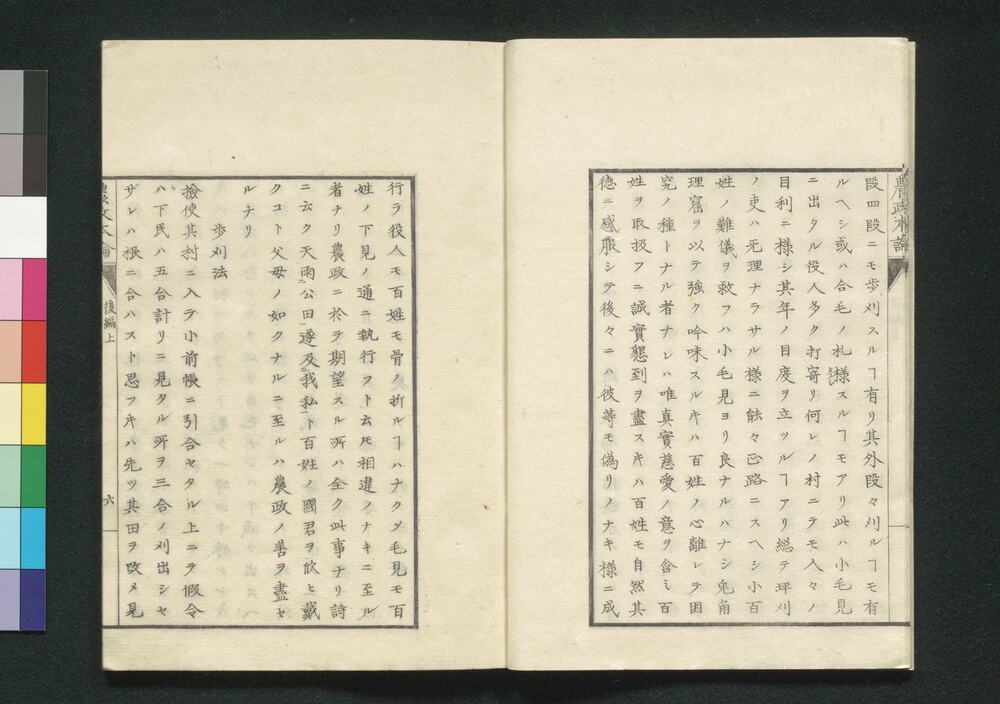 農政本論
段四段ニモ歩刈スルヿ有リ其外段々刈ルヿモ有
ルヘシ或ハ合毛ノ札様スルヿモアリ此ハ小毛見
ニ出タル役人多ク打寄リ何レノ村ニテモ人々ノ
目利ニ様シ其年ノ目度ヲ立ツルヿアリ総テ坪刈
ノ吏ハ无理ナラサル様ニ能々正路ニスヘシ小百
姓ノ難儀ヲ救フハ小毛見ヨリ良ナルハナシ兎角
理窟ヲ以テ強ク吟味スルキハ百姓ノ心離レテ困
究ノ種トナル者ナレハ唯真實慈愛ノ意ヲ含ミ百
姓ヲ取扱フニ誠實懇到ヲ盡スキハ百姓モ自然其
德ニ感服シテ後々ニハ彼等モ偽リノナキ様ニ成
行テ役人モ百姓モ骨ヲ折ルヿハナクシ毛見モ百
姓ノ下見ノ通ニ執行フト云𪜈相違ノナキニ至ル
者ナリ農政ニ於テ期望スル所ハ全ク此事ナリ詩
ニ云ク天雨公田遂及我私ト百姓ノ國君ヲ欣ヒ戴
クコト父母ノ如クナルニ至ルハ農政ノ善ヲ盡セ
ルナリ
歩刈法
撿使其村ニ入テ小前帳ニ引合セタル上ニテ假令
ハ下民ハ五合計リニ見タル所ヲ三合ノ刈出シヤ
ザレハ根ニ合ハスト思フ片ハ先ツ其田ヲ改メ見
農政本論
後編上
六